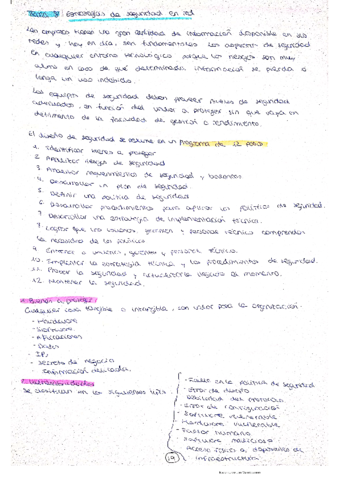 Tema 7: Estrategias de seguridad en red
Las empresas tienen una gran cantidad de información disponible en sus
redes y, hoy en día, son fundamentales los aspectos de seguridad
en cualquier entorno tecnológico, porque los riesgos son muy
altos en caso de que determinada información se pierda o
tenga un uso indebido.
Los equipos de seguridad deben proveer niveles de seguridad
adecuados, en función del valor a proteger sin que vaya en
detrimento de la facilidad de gestión o rendimiento.
El diseño de seguridad se resume en un programa de 12 pasos
1. Identificar bienes a proteger
2. Analizar riesgos de seguridad
3. Analizar requerimientos de seguridad y
4. Desarrollar un plan de seguridad
5. Definir una política de seguridad
6. Desarrollar procedimientos para aplicar la política de seguridad.
7. Desarrollar una estrategia de implementación técnica.
8. que los usuarios, gerentes y personal técnico comprendan
la necesidad de las políticas
9. Entrenar a usuarios, gerentes y personal técnico.
10. Implementar la estrategia técnica y los procedimientos de seguridad.
11. Probar la seguridad y
12. Mantener la seguridad.
Bienes a proteger
Cualquier cosa tangible o intangible, con valor para la organización.
- Hardware
- Software
- Aplicaciones
- Datos
- IP
- Secretos de negocio
- Información
Vulnerabilidades
Se clasifican en los siguientes tipos
- Fallos en la política de seguridad
- Error de diseño
- Debilidad del protocolo
- Error de configuración
- Software vulnerable
- Hardware vulnerable
- Factor humano
- Software malicioso
- Acceso físico a dispositivos de
infraestructura